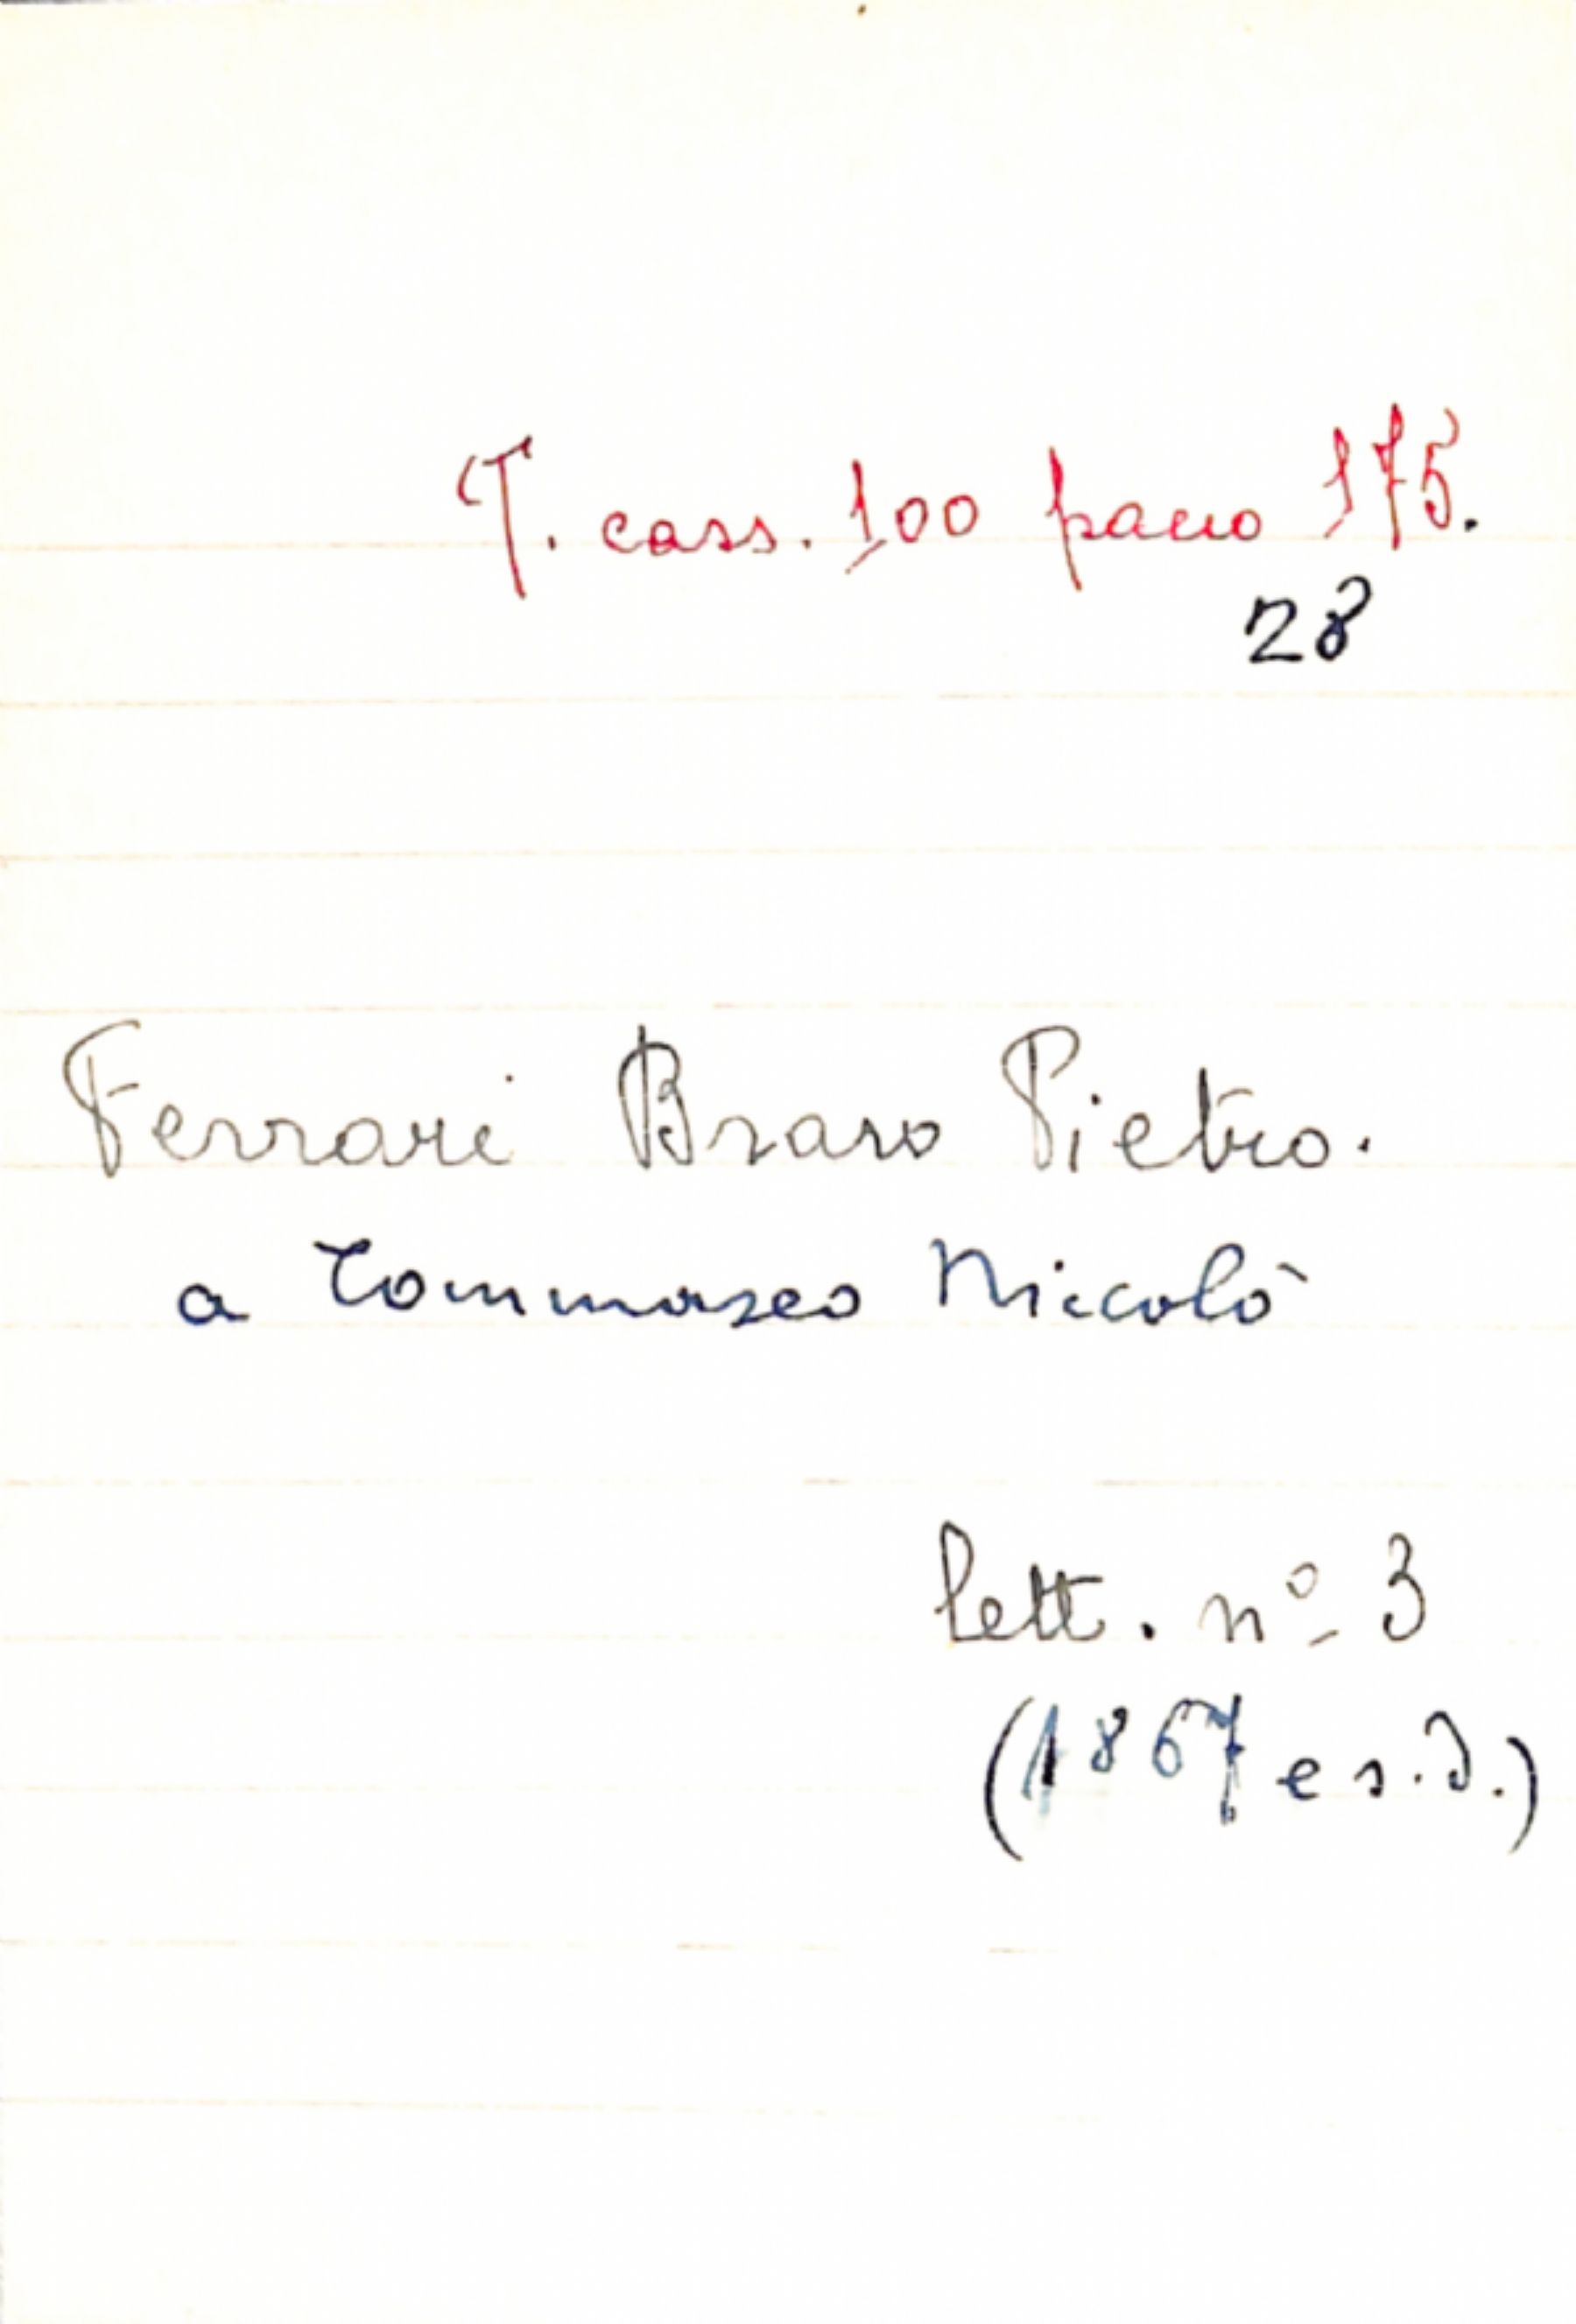 T. cass. 100 pacco 175.
28
Ferrari Bravo Pietro.
a Tommaseo Niccolò
lett. nº 3
(1867 e s.d.)